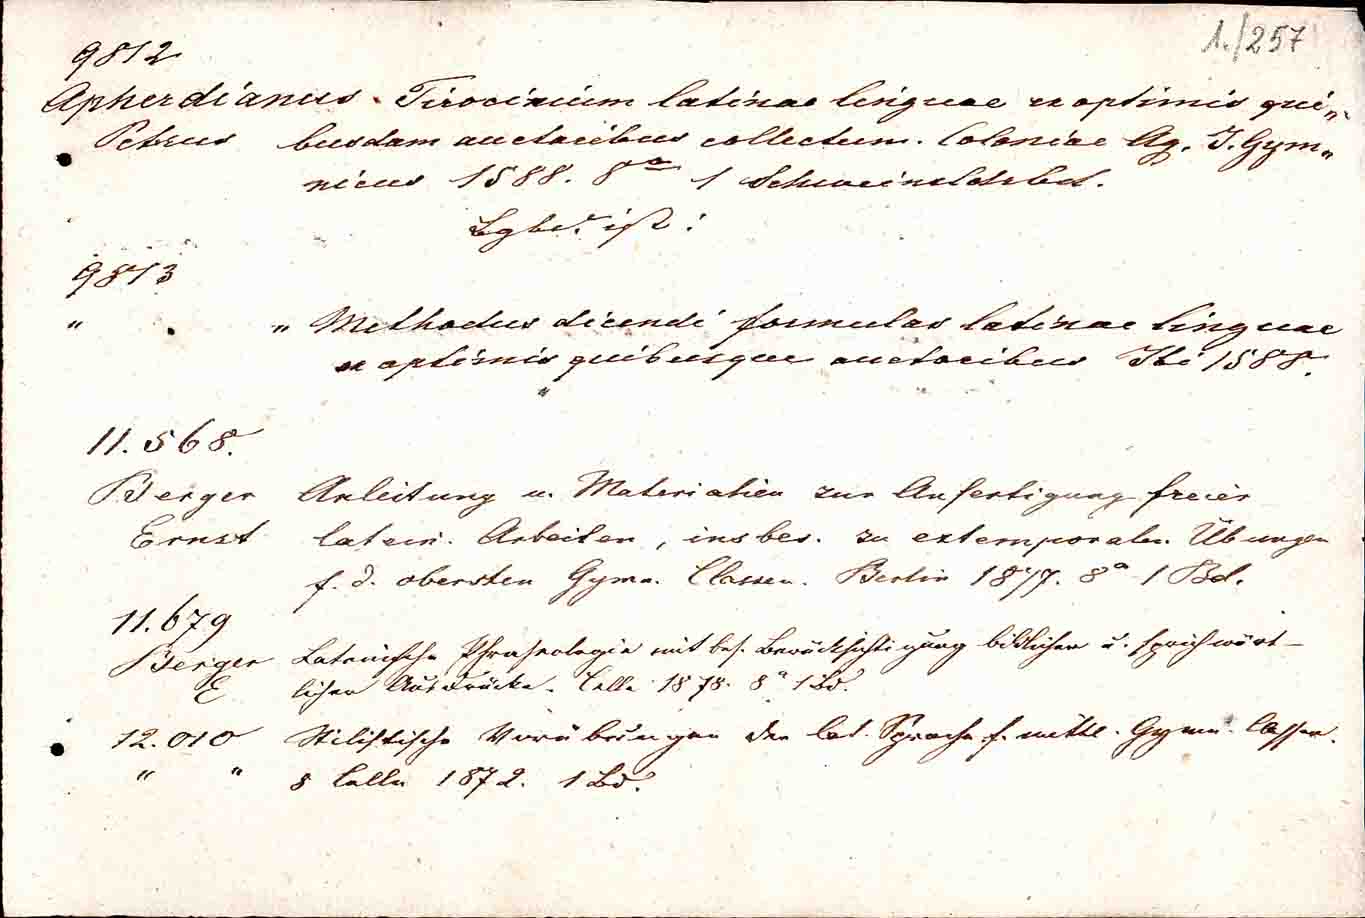 1./257
9812
Apherdianus. Tirocinium latinae linguae ex optimis qui„
Petrus busdam auctoribus collectum. Coloniae Ag. J. Gym„
nicus 1588. 8° 1 Schweinsldrbd.
Bgbd. ist:
9813
" " Methodus dicendi formulas latinae linguae
ex optimis quibusque auctoribus Ibi 1588.
11.568.
Berger Anleitung u. Materialien zur Anfertigung freier
Ernst latein. Arbeiten, insbes. zu extemporalen Übungen
f. d. obersten Gymn. Classen. Berlin 1877. 8° 1 Bd.
11.679
Berger Lateinische Phraseologie mit bes. Berücksichtigung bildlicher u. sprichwört-
E licher Ausdrücke. Celle 1878. 8° 1 Bd.
12.010 Stilistische Vorübungen der lat. Sprache f. mittl. Gymn. Classen.
" " 8 Celle 1872. 1 Bd.